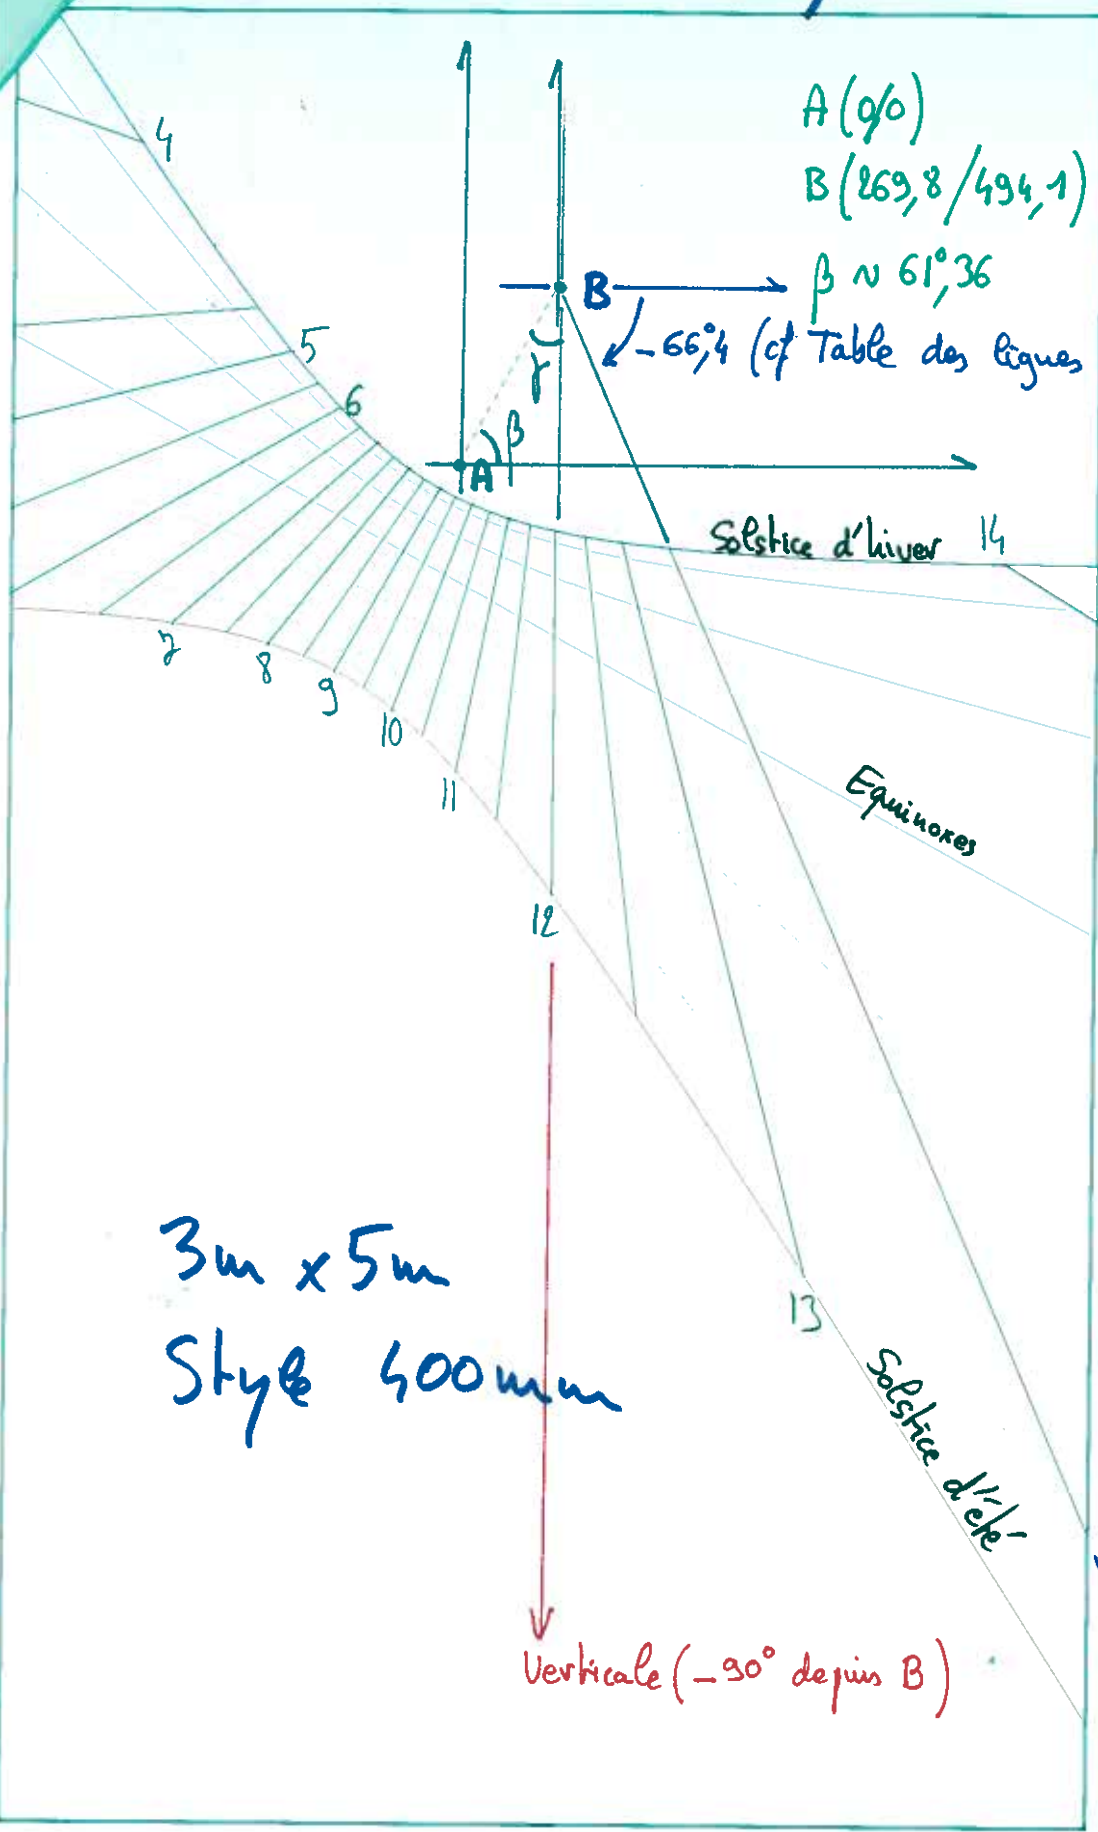 A (0/0)
B (269,8/494,1)
β ~ 61°,36
B
-66°,4 (cf Table des lignes
γ
β
A
4
5
6
Solstice d'hiver
14
7
8
9
10
11
12
13
Equinoxes
3m x 5m
Style 400mm
Solstice d'été
Verticale (-90° depuis B)